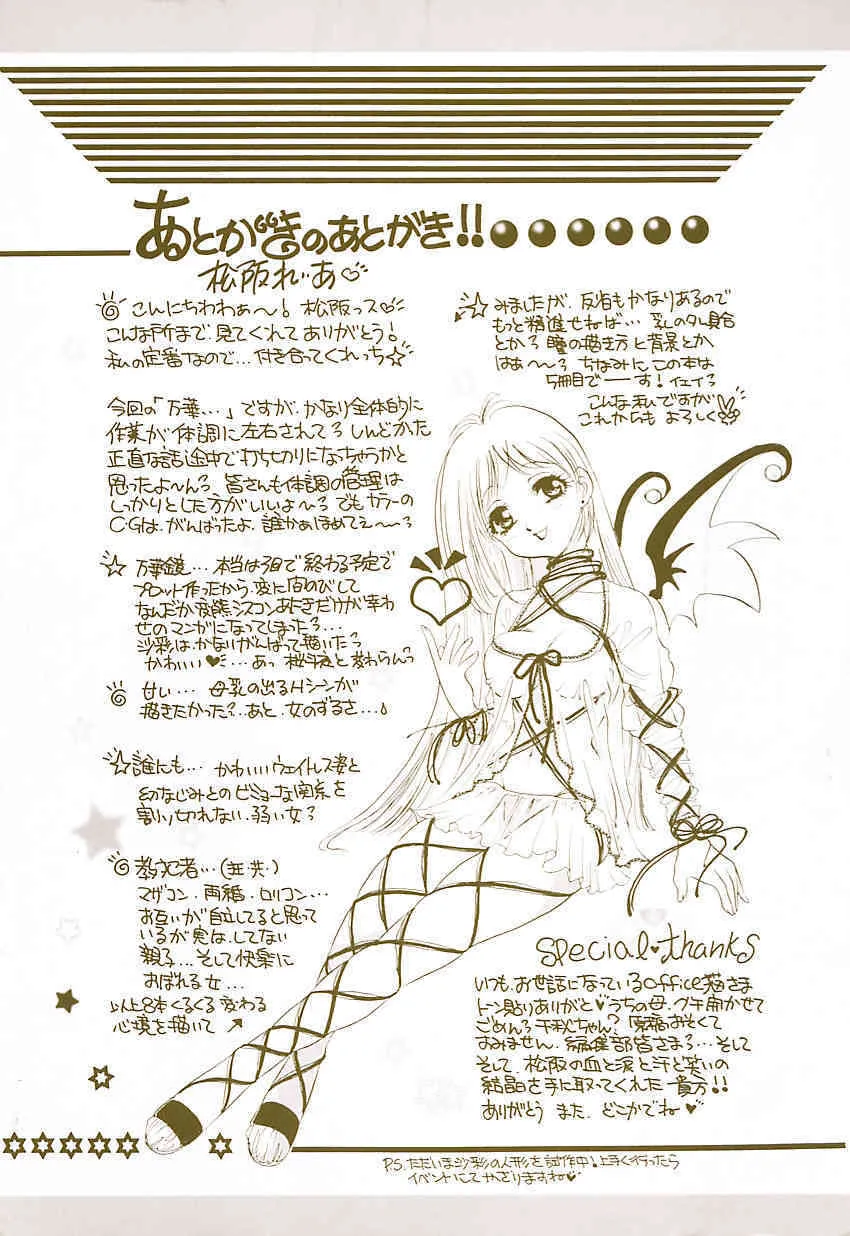 あとがきのあとがき!!
松阪れぃあ♡
こんにちわわぁ〜! 松阪っス♡
こんな所まで、見てくれてありがとう!
私の定番なので…付き合ってくれっち☆
今回の「万華…」ですが、かなり全体的に
作業が体調に左右されてる しんどかた
正直な話途中で打ち切りになっちゃうかと
思ったよ〜ん 皆さんも体調の管理は
しっかりとした方がいいよぉ〜 でもカラーの
C・Gは、がんばったよ、誰かぁほめてぇ〜〜
☆万華鏡…本当は3回で終わる予定で
プロット作ったから、変に間のびして
なんだか変態シスコンあにきだけが幸わ
せのマンガになってしまった…
沙彩は、かなりがんばって描いた
かわいい♥…あっ 桜子
甘い… 母乳の出るHシーンが
描きたかった?…あと、女のずるさ…
☆誰にも… かわいいウェイトレス姿と
幼なじみとのビミョーな関係を
割り切れない、弱い女
マザコン、再婚、ロリコン…
お互いが自立してると思って
いるが実は、してない
親子…そして快楽に
おぼれる女…
以上8本くるくる変わる
心境を描いて
☆みましたが、反省もかなりあるので
もっと精進せねば… 乳のタレ具合
とか 瞳の描き方と背景とか
はぁ〜〜 ちなみにこの本は
5冊目でーーす! イェイ
こんな私ですが
これからも よろしく
special♥thanks
いつも、お世話になっているoffice猫さま
トーン貼りありがと♥うちの母、グチ聞かせて
ごめん 千秋ちゃん? 原稿おそくて
すみません、編集部皆さま…そして
そして、松阪の血と涙と汗と笑いの
結晶を手に取ってくれた 貴方!!
ありがとう また、どこかでね♥
P.S.ただいま沙彩の人形を試作中!上手く行ったら
イベントにて かざりますね♥